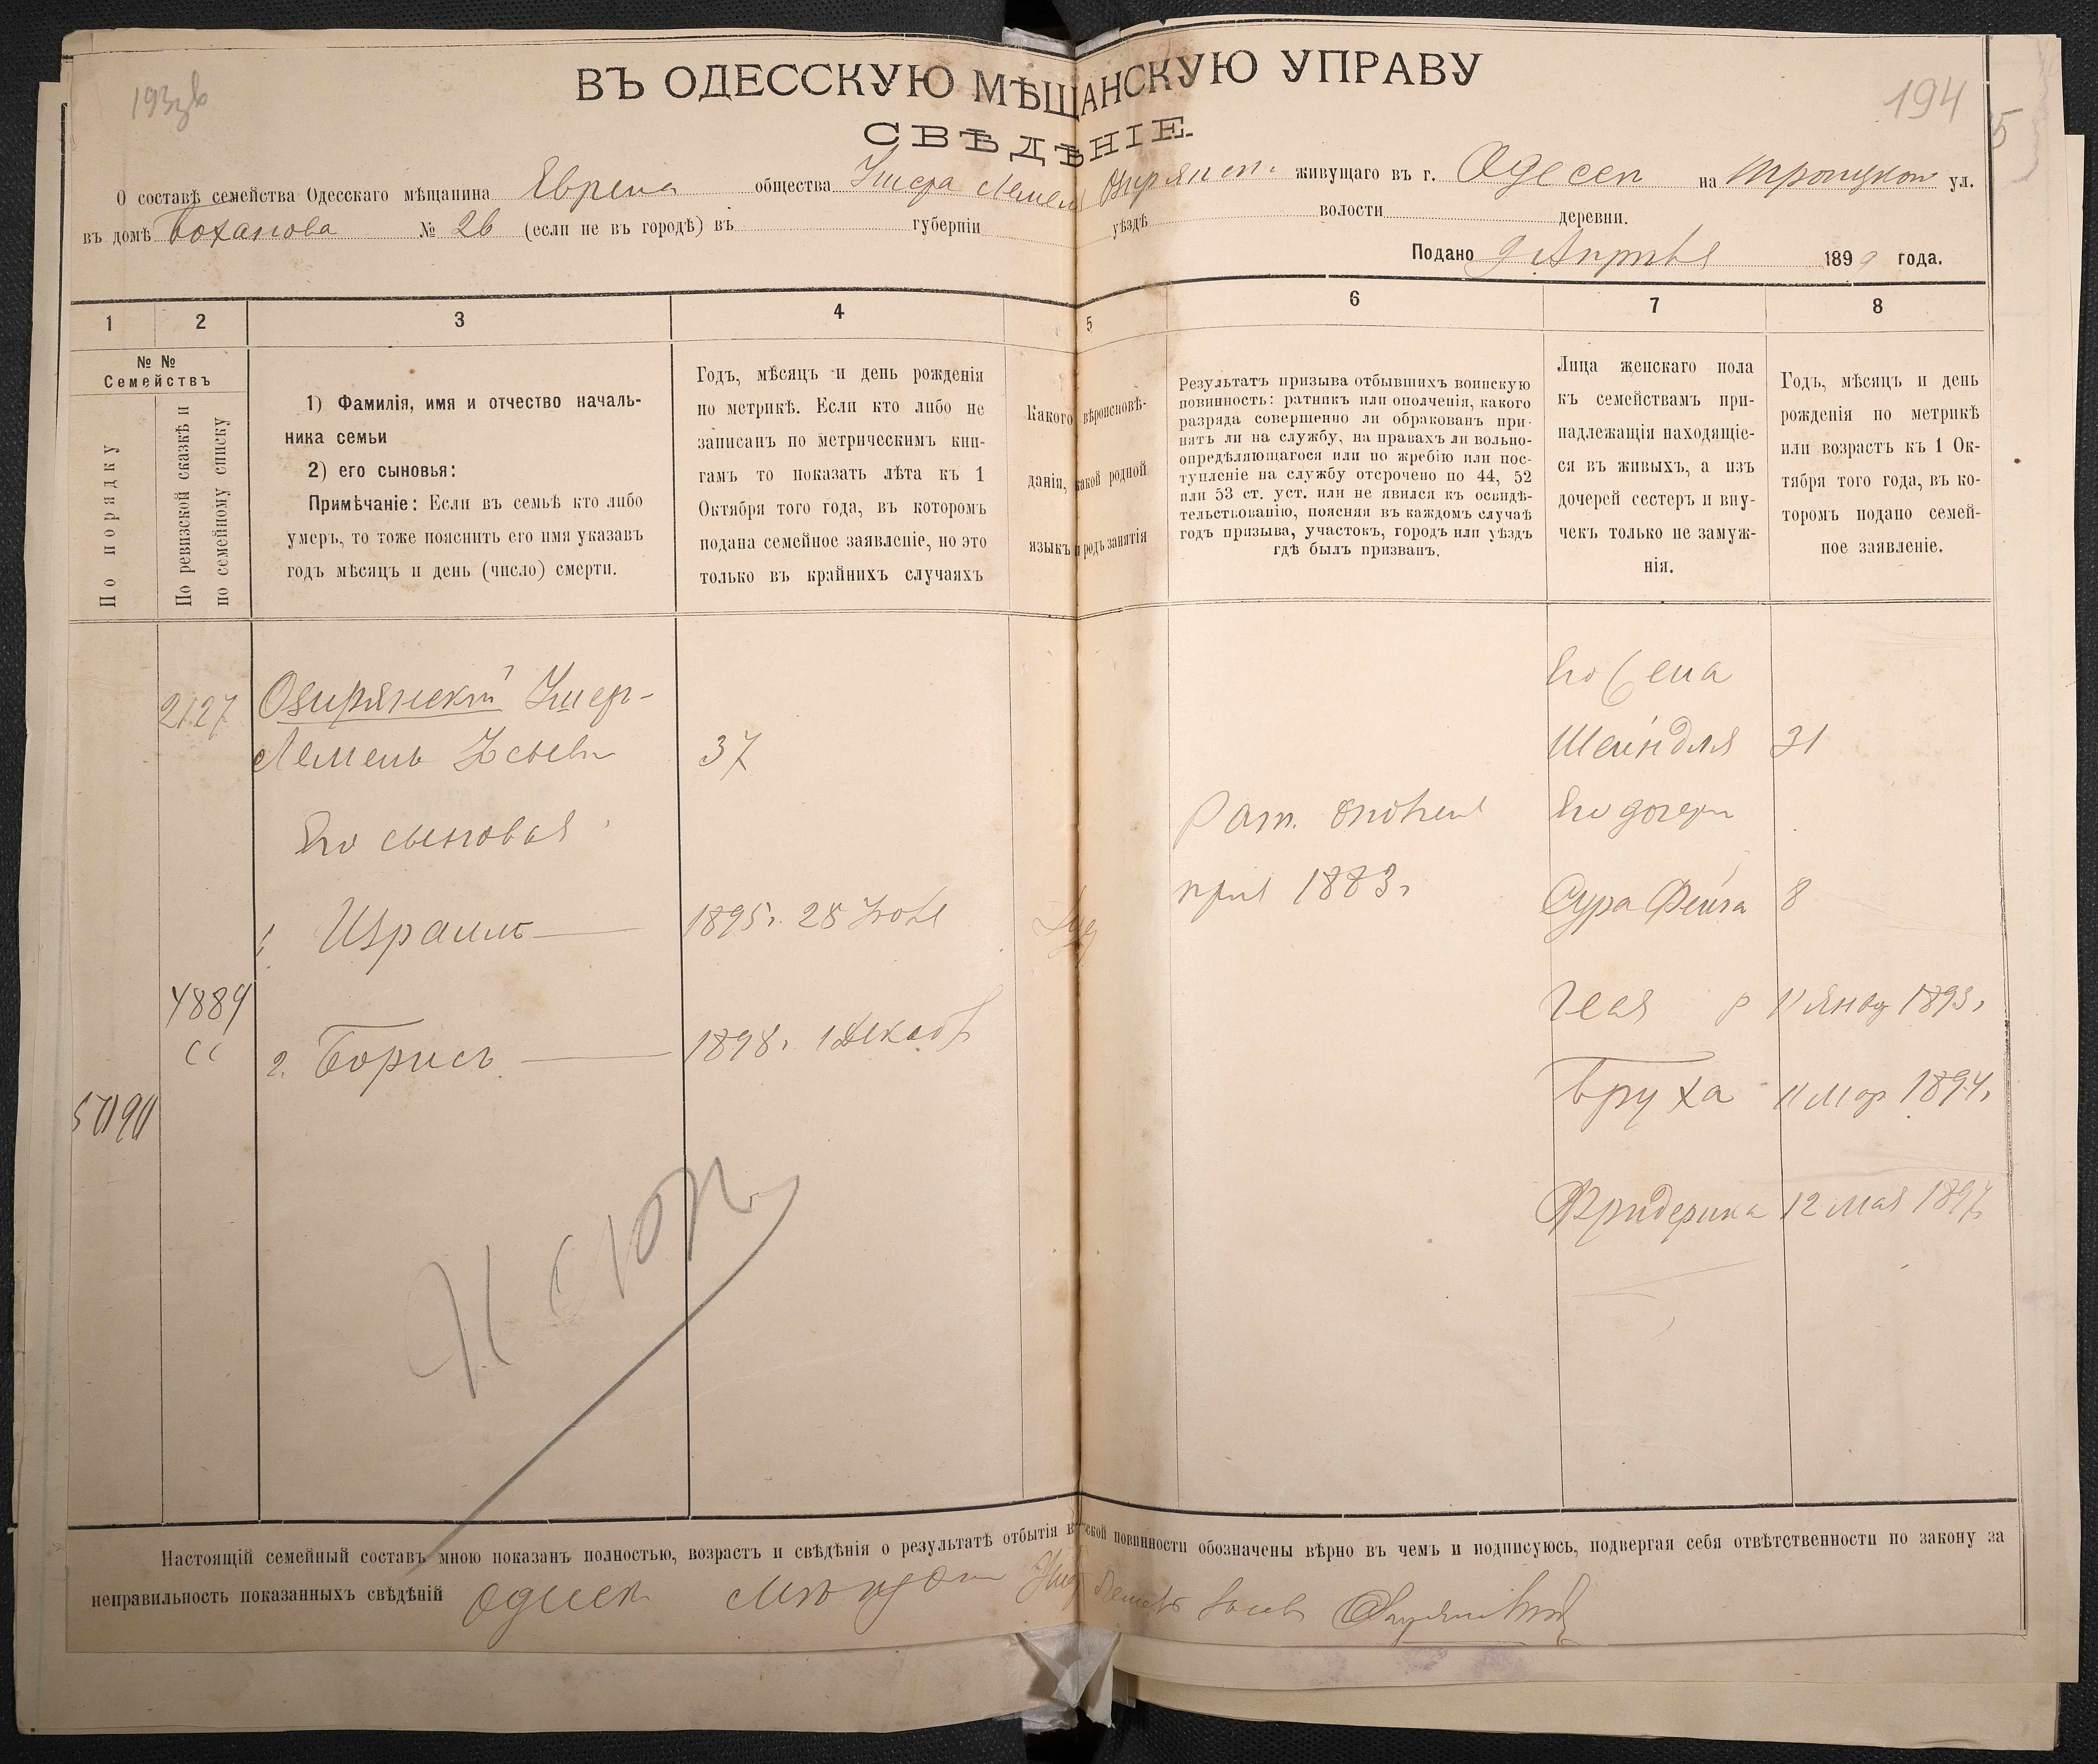 193
194
ВЪ ОДЕССКУЮ МѢЩАНСКУЮ УПРАВУ
СВѢДѢНІЕ.
О составѣ семейства Одесскаго мѣщанина Еврея общества живущаго въ г. Одессѣ на Троицкой ул.
въ домѣ № 26 (если не въ городѣ) въ губерніи уѣздѣ волости деревни.
Подано 9 Апрѣля 1899 года.
1 2 3 4 5 6 7 8
№ №
Семействъ
По порядку
По ревизской сказкѣ и
по семейному списку
1) Фамилія, имя и отчество началь-
ника семьи
2) его сыновья:
Примѣчаніе: Если въ семьѣ кто либо
умеръ, то тоже пояснить его имя указавъ
годъ мѣсяцъ и день (число) смерти.
Годъ, мѣсяцъ и день рожденія
по метрикѣ. Если кто либо не
записанъ по метрическимъ кни-
гамъ то показать лѣта къ 1
Октября того года, въ которомъ
подана семейное заявленіе, но это
только въ крайнихъ случаяхъ
Какого вѣроисповѣ-
данія, какой родной
языкъ и родъ занятія
Результатъ призыва отбывшихъ воинскую
повинность: ратникъ или ополченія, какого
разряда совершенно ли обракованъ при-
нятъ ли на службу, на правахъ ли вольно-
опредѣляющагося или по жребію или пос-
тупленіе на службу отсрочено по 44, 52
или 53 ст. уст. или не явился къ освидѣ-
тельствованію, поясняя въ каждомъ случаѣ
годъ призыва, участокъ, городъ или уѣздъ
гдѣ былъ призванъ.
Лица женскаго пола
къ семействамъ при-
надлежащія находящіе-
ся въ живыхъ, а изъ
дочерей сестеръ и вну-
чекъ только не замуж-
нія.
Годъ, мѣсяцъ и день
рожденія по метрикѣ
или возрастъ къ 1 Ок-
тября того года, въ ко-
торомъ подано семей-
ное заявленіе.
2127 Озирянскій Ушеръ-
Лемель 37
Его сыновья
1. Израиль 1895г. 28
4884
2. Борисъ 1898г. 1 Декаб
Рат. ополчен
приз 1883г
Его жена
Шейндля 31
Его дочери
Сура Фейга 8
Геня р 11 Янв 1893г
Бруха 11 Мар 1894г
Фридерика 12 мая 1897
Настоящій семейный составъ мною показанъ полностью, возрастъ и свѣдѣнія о результатѣ отбытія воинской повинности обозначены вѣрно въ чемъ и подписуюсь, подвергая себя отвѣтственности по закону за
неправильность показанныхъ свѣдѣній